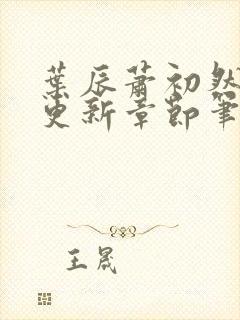 葉辰蕭初然
更新章節筆
王晟